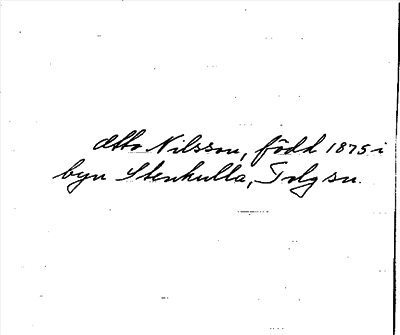 Otto Nilsson, född 1875 i
byn Stenkulla, Tolg sn.